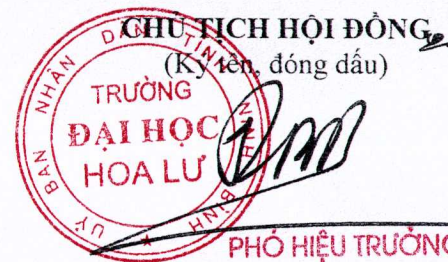 CHỦ TỊCH HỘI ĐỒNG
(Ký tên, đóng dấu)
UỶ BAN NHÂN DÂN TỈNH NINH BÌNH
TRƯỜNG
ĐẠI HỌC
HOA LƯ
PHÓ HIỆU TRƯỞNG